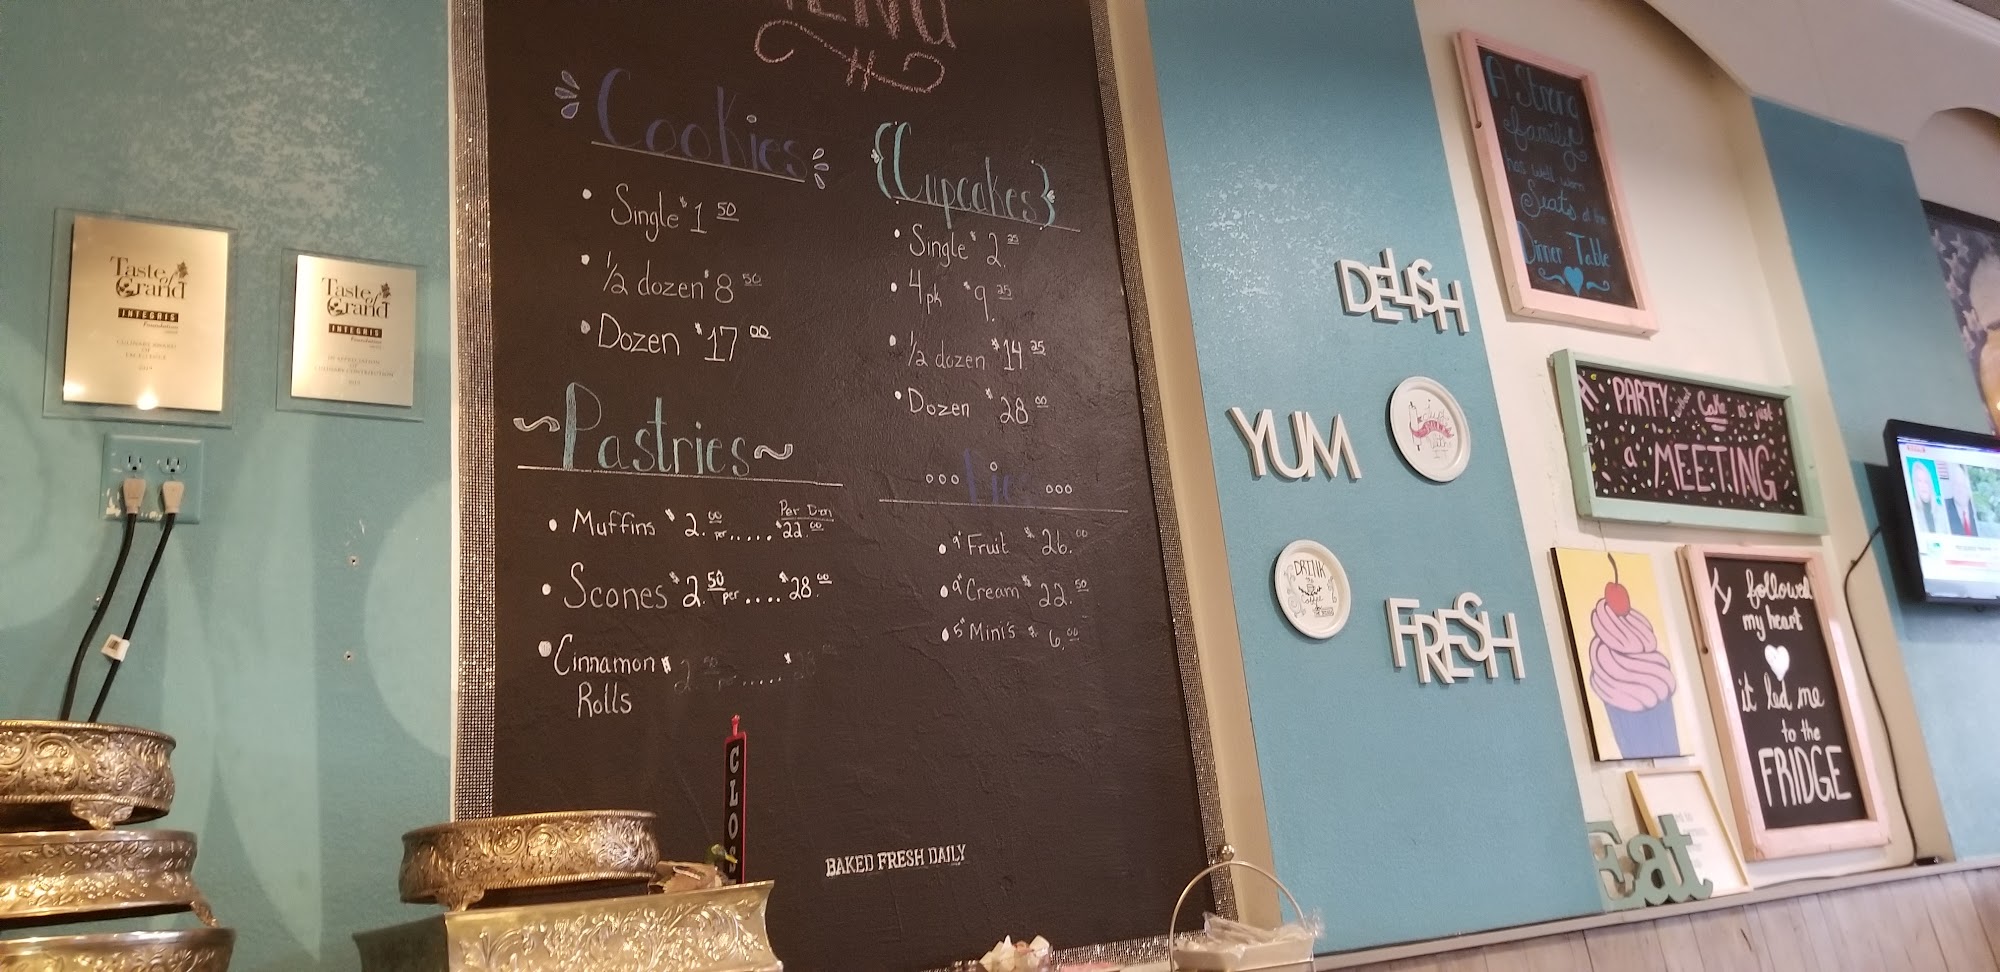 Taste
of
Grand
INTEGRIS
Foundation
CULINARY AWARD
OF
EXCELLENCE
Taste
of
Grand
INTEGRIS
Foundation
IN APPRECIATION
OF
CULINARY CONTRIBUTION
Cookies
• Single $1 50
• 1/2 dozen $8 50
• Dozen $17 00
~Pastries~
• Muffins $2.00 per..... Per Dzn $22.00
• Scones $2.50 per .... $28.00
• Cinnamon $2.50 per ..... $28.00
Rolls
{Cupcakes}
• Single $2.25
• 4pk $9.25
• 1/2 dozen $14 25
• Dozen $28 00
ooo Pies ooo
• 9" Fruit $26.00
• 9" Cream $22.50
• 5" Mini's $6.00
BAKED FRESH DAILY
DELISH
YUM
FRESH
DRINK
Coffee
A Strong
family
has well worn
Seats at the
Dinner Table
A PARTY without Cake is just
a MEETING
I followed
my heart
it led me
to the
FRIDGE
Eat